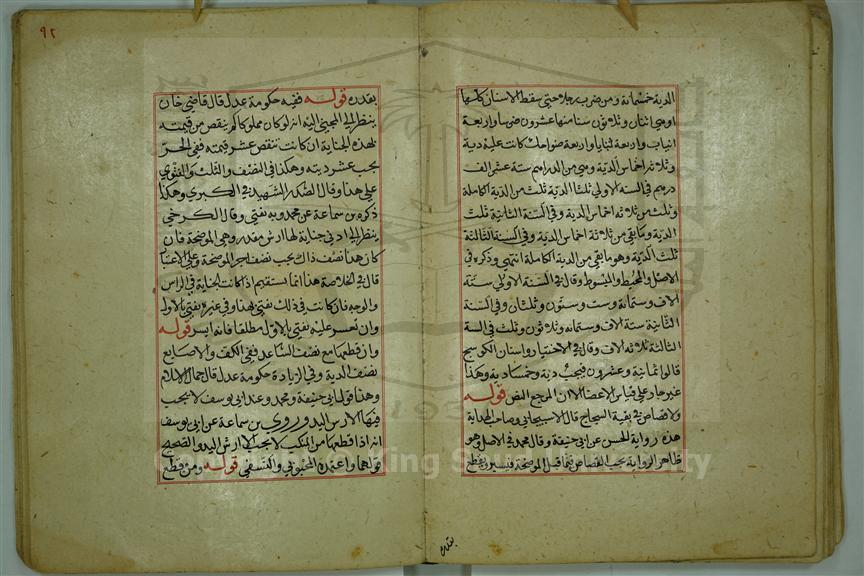 الدية خمسمائة ومن ضرب رجلا حتى سقط الاسنان كلها
وهي اثنان وثلاثون سنا منها عشرون ضرسا واربعة
انياب واربعة ثنايا واربعة ضواحك كانت عليه دية
وثلاثة اخماس الدية وهي من الدراهم ستة عشر الف
درهم في السنة الاولى ثلثا الدية ثلث من الدية الكاملة
وثلث من ثلاثة اخماس الدية وفي السنة الثانية ثلث
الدية وما بقي من ثلاثة اخماس الدية وفي السنة الثالثة
ثلث الدية وهو ما بقي من الدية الكاملة انتهى وذكره في
الاصل والمحيط والمبسوط وقال في السنة الاولى ستة
الاف وستمائة وست وستون وثلثان وفي السنة
الثانية ستة الاف وستمائة وثلاثون وثلث في السنة
الثالثة ثلاثة الاف وقال في الاختيار واسنان الكوسج
قالوا ثمانية وعشرون فيجب دية وخمسا دية وهذا
غير جار على قياس الاعضاء الا ان المرجع النص قوله
ولا قصاص في بقية الشجاج قال الاسبيجابي وصاحب الهداية
هذه رواية الحسن عن ابي حنيفة وقال محمد في الاصل وهو
ظاهر الرواية يجب القصاص فيما قبل الموضحة فيسبر ويقطع
بقدره
٩٢
بقدره قوله ففيه حكومة عدل قال قاضي خان
ينظر الى المجني اليه انه لو كان مملوكا كم ينقص من قيمته
بهذه الجناية ان كانت تنقص عشر قيمته ففي الحر
يجب عشر ديته وهكذا في النصف والثلث والفتوى
على هذا وقال الصدر الشهيد في الكبرى وهكذا
ذكره بن سماعة عن محمد وبه نفتي وقال الكرخي
ينظر الى ادنى جناية لها ارش مقدر وهي الموضحة فان
كان هذا نصف ذاك يجب نصف اجر الموضحة وعلى الاعتبار
قال في الخلاصة هذا انما يستقيم اذا كانت الجناية في الراس
والوجه فان كانت في ذلك نفتي بهذا وفي غيره نفتي بالاول
وان تعسر عليه نفتي بالاول مطلقا فانه ايسر قوله
وان قطعها مع نصف الساعد ففي الكف والاصابع
نصف الدية وفي الزيادة حكومة عدل قال جمال الاسلام
وهذا قول ابي حنيفة ومحمد وعند ابي يوسف لا يجب
فيها الا ارش اليد وروى بن سماعة عن ابي يوسف
انه اذا قطعها من المنكب لا يجب الا ارش اليد والصحيح
قولهما واعتمده المحبوبي والنسفي قوله ومن قطع
Copyright © King Saud University
1957